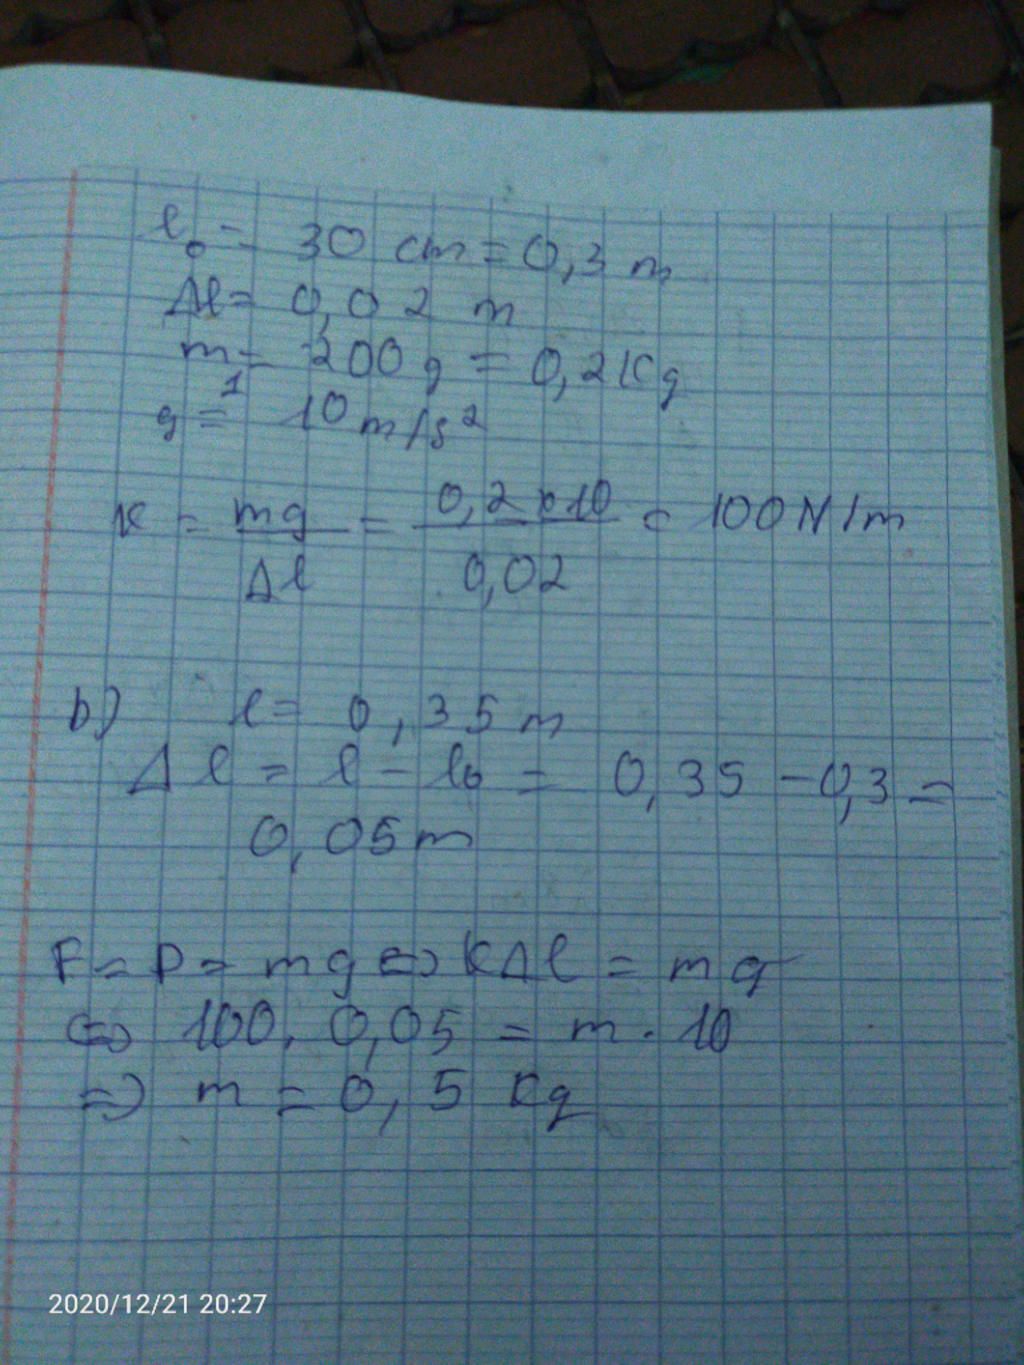 l₀ = 30 cm = 0,3 m
Δl = 0,02 m
m₁ = 200 g = 0,2 Kg
g = 10 m/s²
K = mg/Δl = 0,2 x 10/0,02 = 100 N/m
b) l = 0,35 m
Δl = l - l₀ = 0,35 - 0,3 =
0,05 m
F = P = mg ⇔ KΔl = mg
⇔ 100. 0,05 = m . 10
⇒ m = 0,5 Kg
2020/12/21 20:27